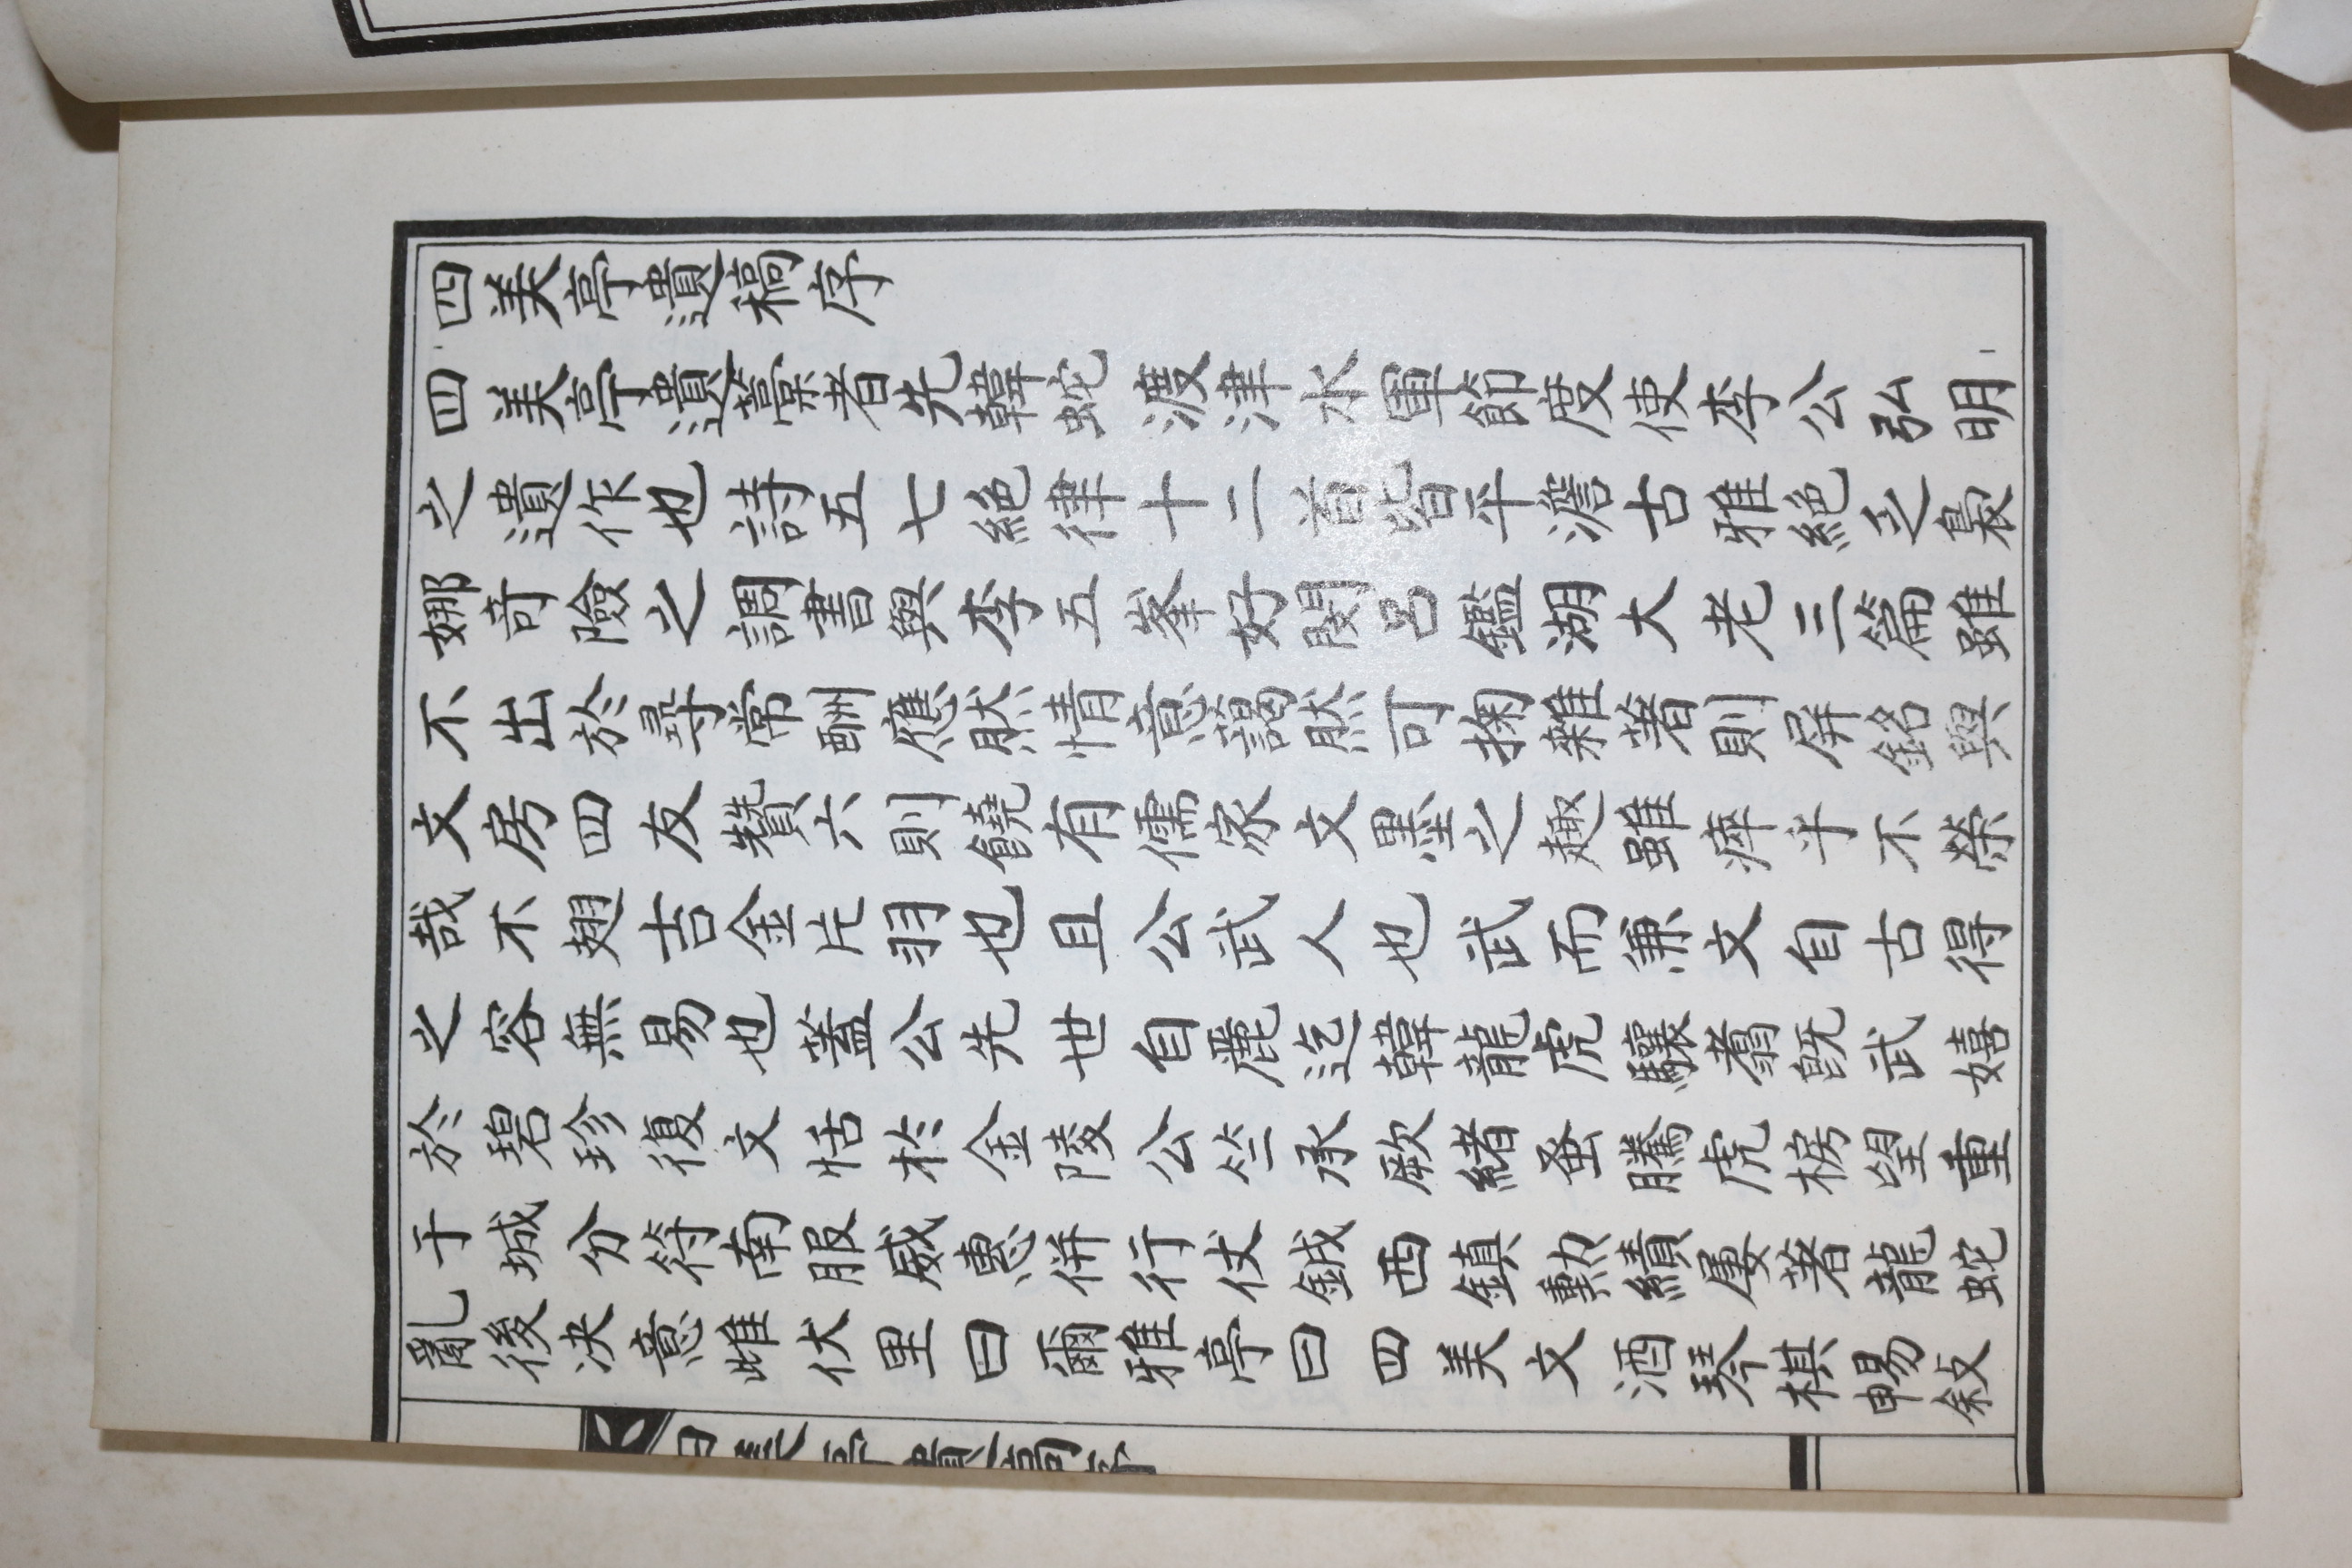 四美亭遺稿序
四美亭遺藁者先韓蛇渡津水軍節度使李公弘明
之遺作也詩五七絕律十二首皆平澹古雅絕乏裊
娜奇險之調書與李五峯好閔呂鑑湖大老三篇雖
不出於尋常酬應然情意藹然可掬雜著則屛銘與
文房四友贊六則饒有儒家文墨之趣雖瘁乎不榮
哉不翅吉金片羽也且公武人也武而兼文自古得
之容無易也蓋公先世自麗迄韓龍虎驤翥旣武嬉
於碧珍復文恬於金陵公竺承厥緖蚤騰虎榜望重
于城分符南服威惠併行仗鉞西鎭勳績屢著龍蛇
亂後決意雌伏里曰爾雅亭曰四美文酒琴棋暢敍
四美亭遺稿序